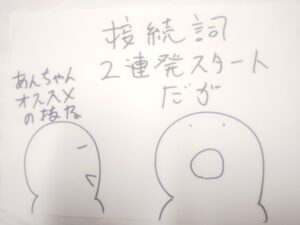 接続詞
2連発スタート
だが
あんちゃん
オススメ
の技な